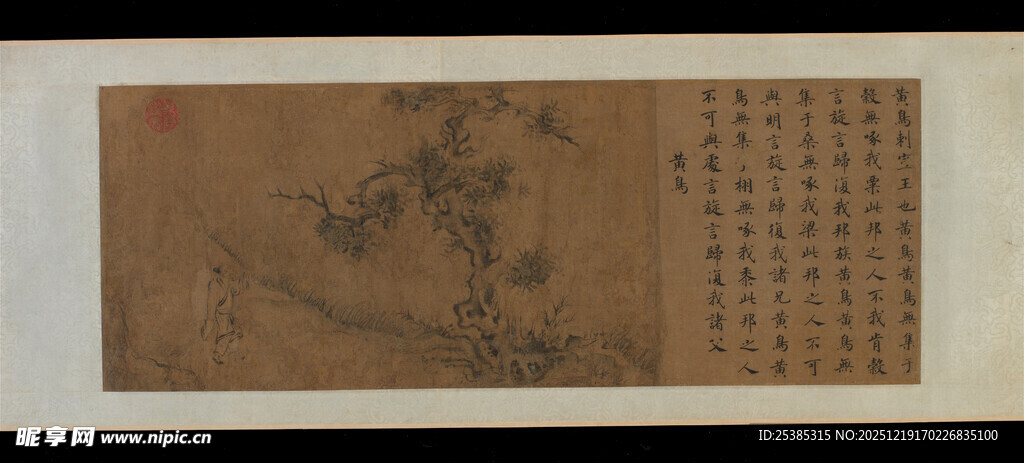 黃鳥刺宣王也黃鳥黃鳥無集于
穀無啄我粟此邦之人不我肯穀
言旋言歸復我邦族黃鳥黃鳥無
集于桑無啄我梁此邦之人不可
與明言旋言歸復我諸兄黃鳥黃
鳥無集栩無啄我黍此邦之人
不可與處言旋言歸復我諸父
黃鳥
昵享网 www.nipic.cn
ID:25385315 NO:20251219170226835100